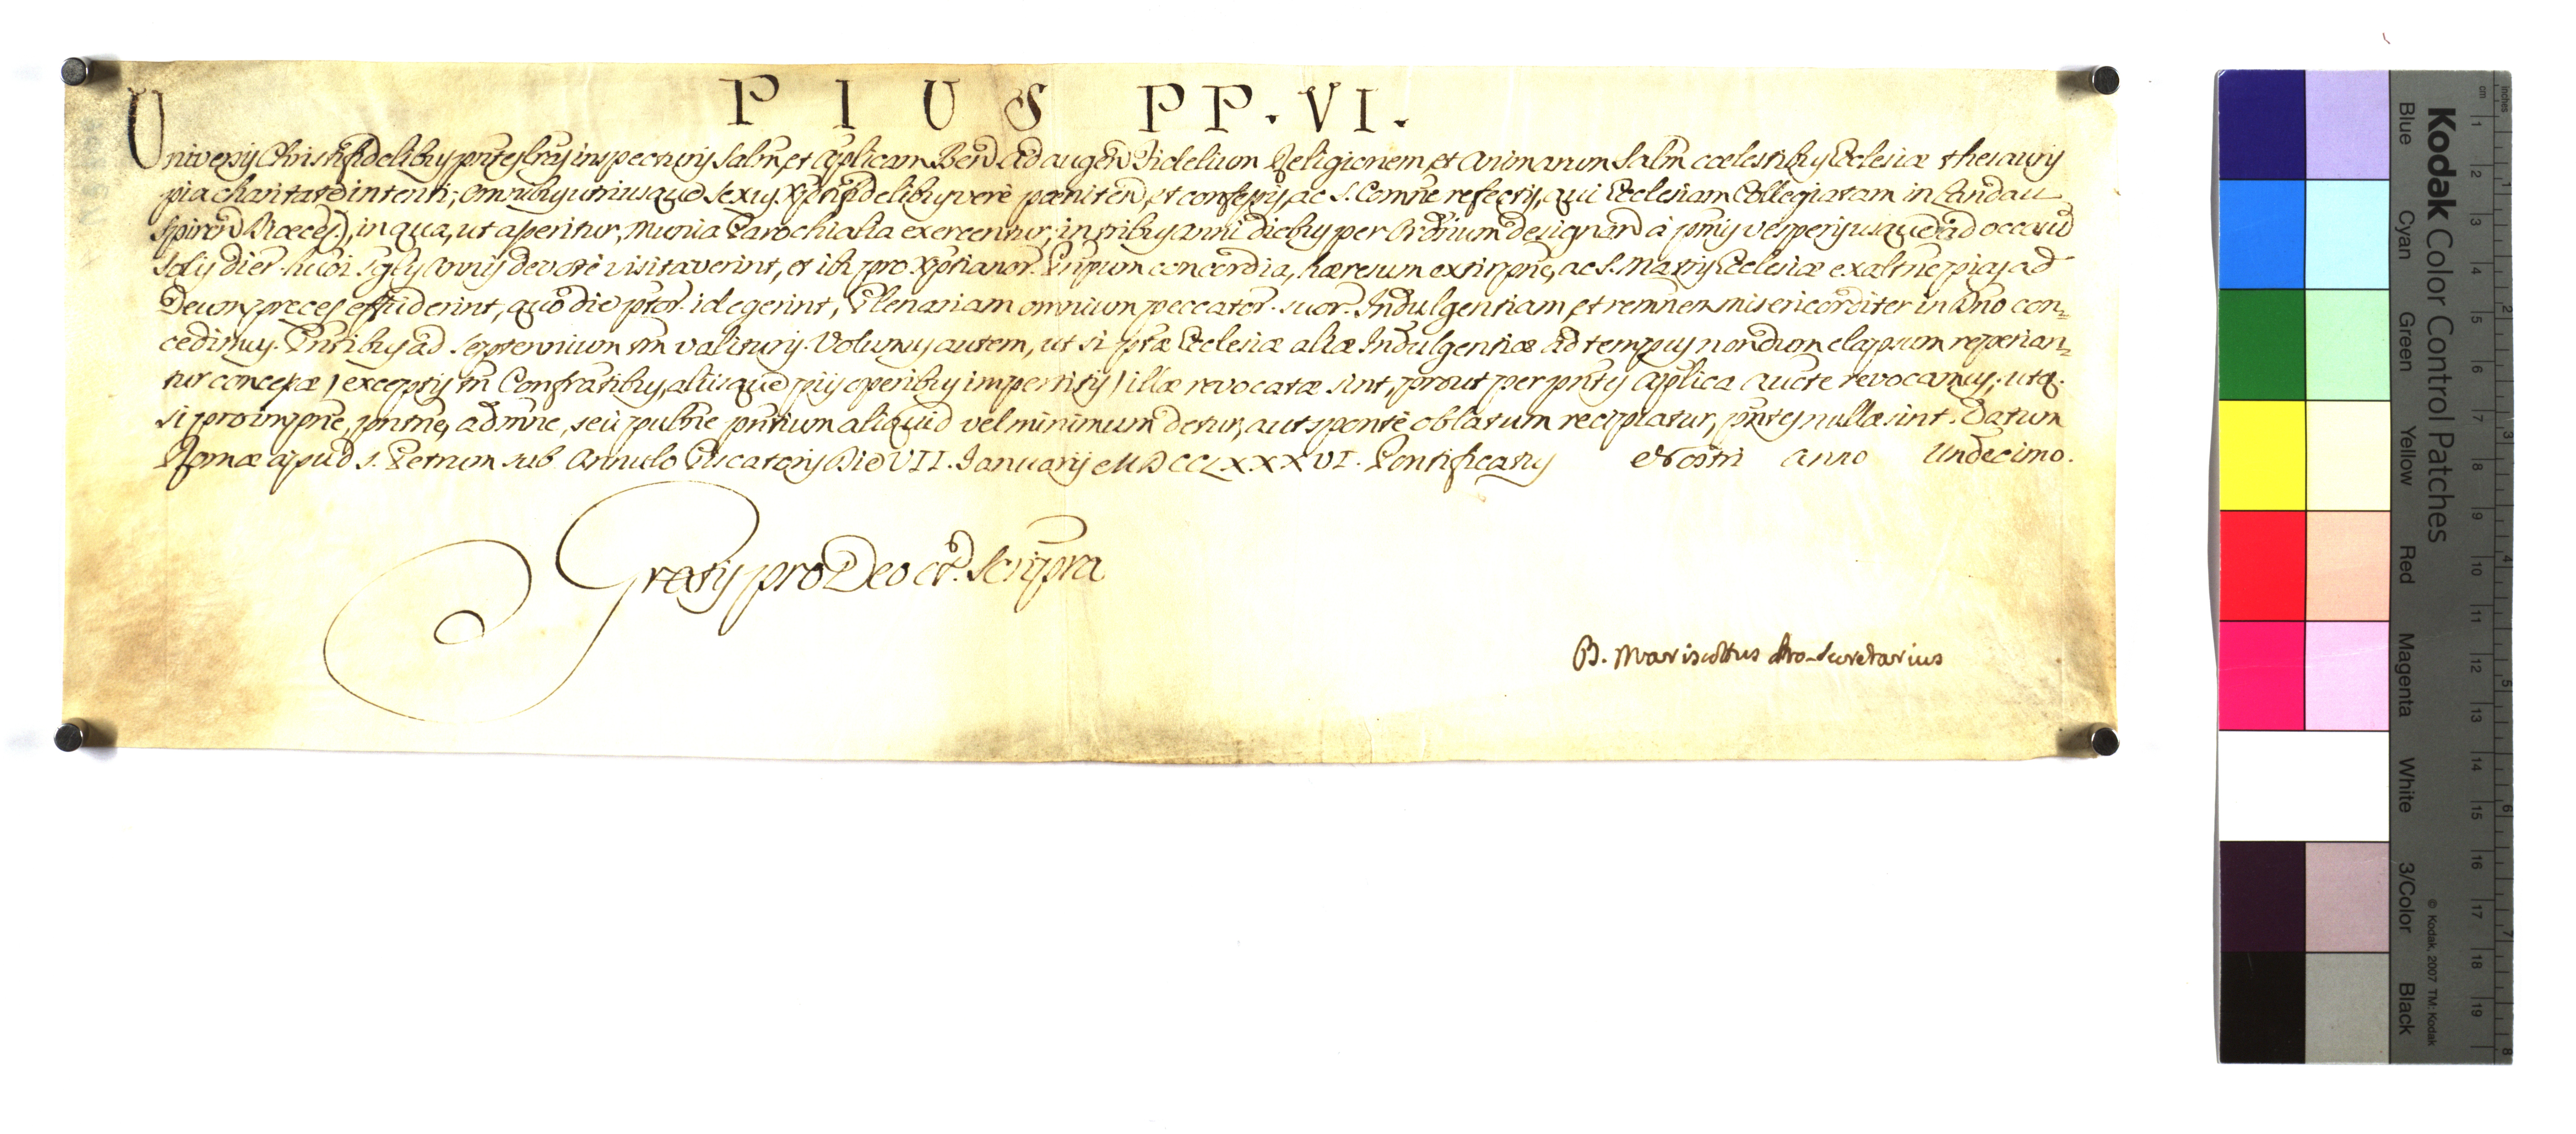 PIUS PP. VI.
Universis Christifidelibus pntes lras inspecturis Salm, et Aplicam Bened. Ad augend Fidelium Religionem, et animarum Salm coelestibus Ecclesiæ thesauris
pia charitate intenti; omnibus utriusque sexus Xptifidelibus verè pœniten, et confessis, ac S. Comne refectis, qui Ecclesiam Collegiatam in Landau
Spiren Diœces), in qua, ut asseritur, munia Parochialia exercentur, in tribus anni diebus per Ordrium designand à pmis vesperis usque ad occasũ
Solis dier. huõi sglis Annis devotè visitaverint, et ibi pro Xptianor. Pnpum concordia, hæresum extirpne, ac S. Matris Ecclesiæ exaltne pias ad
Deum preces effuderint, quõ die ptor. id egerint, Plenariam omnium peccator. suor. Indulgentiam, et remnem misericorditer in Dno con-
cedimus. Pntibus ad Septennium tm valituris. Volumus autem, ut si ptæ Ecclesiæ aliæ Indulgentiæ ad tempus nondum elapsum reperian-
tur concessæ) exceptis tñ Confratibus, aliisque piis operibus impertitis) illæ revocatæ sint, prout per pntes Aplica aucte revocamus; utq.
si pro impne, pntne, admne, seu pulne pntium aliquid vel minimum detur, aut sponte oblatum recipiatur, pntes nullæ sint. Datum
Romæ apud S. Petrum sub Annulo Piscatoris Die VII. Januarij MDCCLXXXVI. Pontificatus Nostri Anno Undecimo.
Gratis pro Deo et Scriptra
B. Mariscottus Pro-Secretarius
Kodak Color Control Patches
Blue Cyan Green Yellow Red Magenta White 3/Color Black
© Kodak, 2007 TM: Kodak
Inches 1 2 3 4 5 6 7 8
cm 1 2 3 4 5 6 7 8 9 10 11 12 13 14 15 16 17 18 19